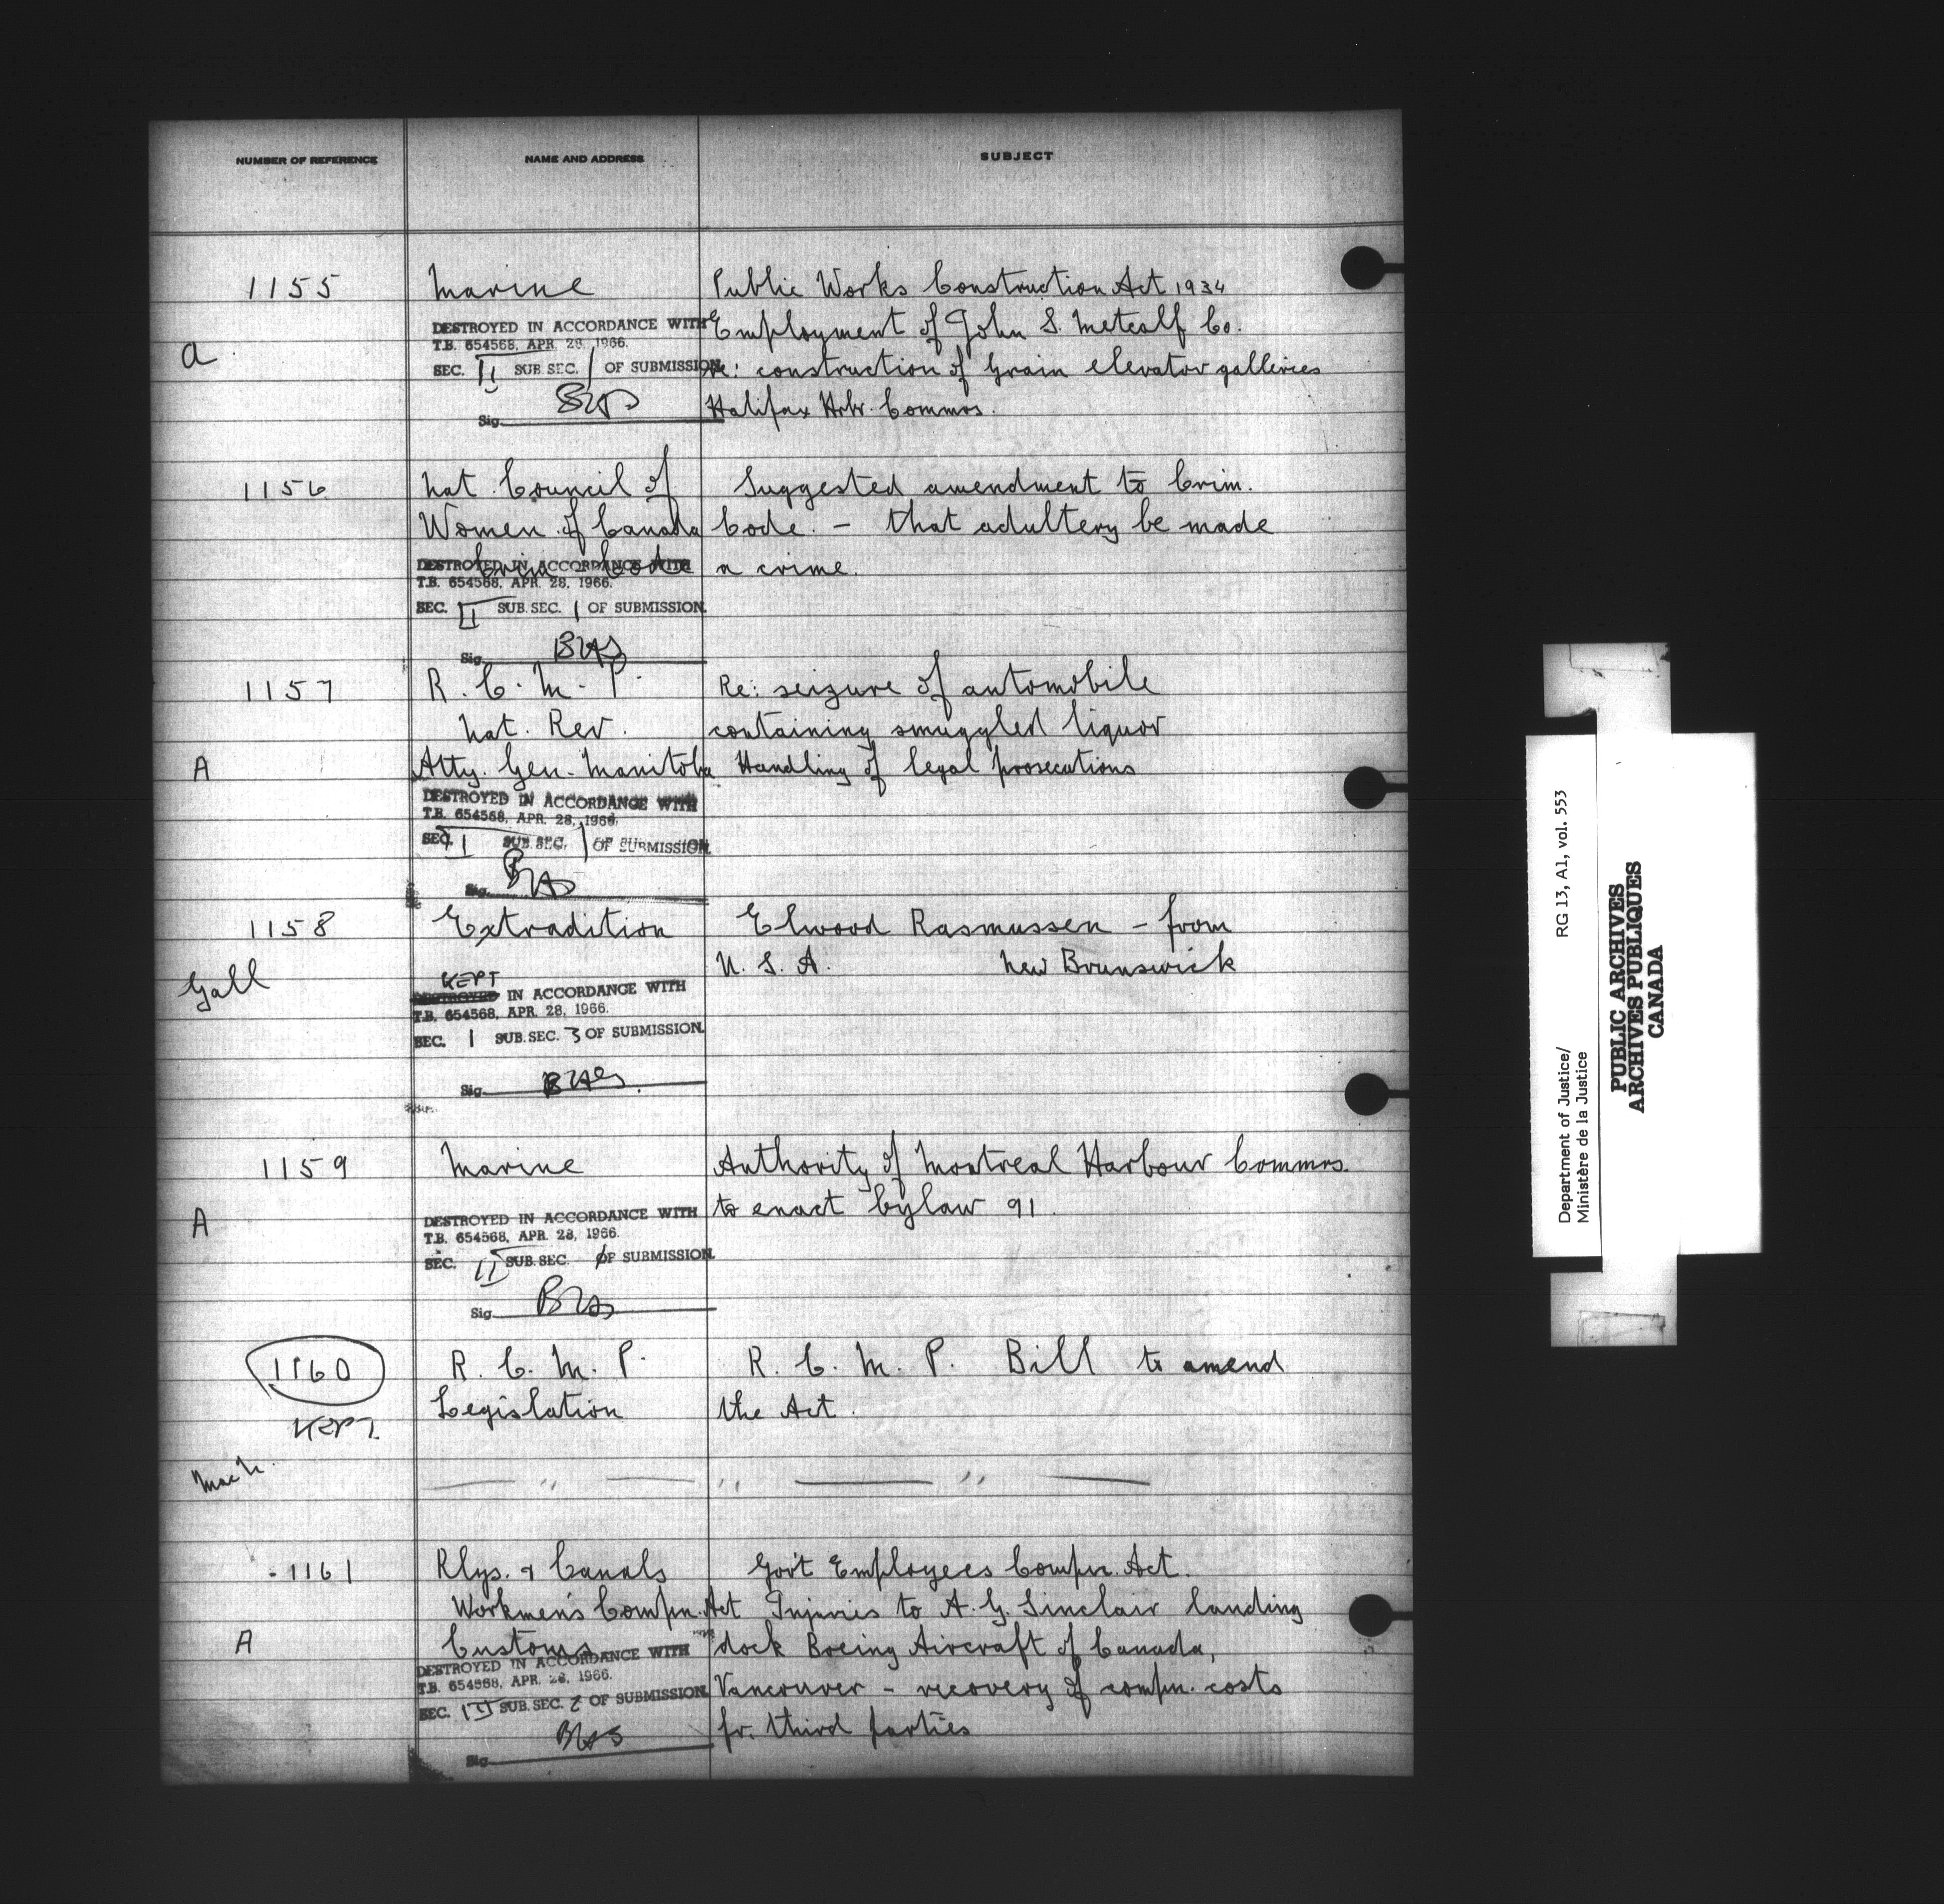 NUMBER OF REFERENCE NAME AND ADDRESS SUBJECT
1155 Marine Public Works Construction Act 1934
DESTROYED IN ACCORDANCE WITH Employment of John S. Metcalf Co.
T.B. 654568, APR. 28, 1966.
a
SEC. II SUB SEC. 1 OF SUBMISSION re: construction of Grain elevator galleries
Halifax Hrbr. Commrs.
Sig.
1156 Nat. Council of Suggested amendment to Crim.
Women of Canada Code. – that adultery be made
Crim. Code a crime.
DESTROYED IN ACCORDANCE WITH
T.B. 654568, APR. 28, 1966.
SEC. II SUB. SEC. 1 OF SUBMISSION.
Sig.
1157 R. C. M. P. Re: seizure of automobile
Nat. Rev. containing smuggled liquor
A Atty. Gen. Manitoba Handling of legal prosecutions
DESTROYED IN ACCORDANCE WITH
T.B. 654568, APR. 28, 1966.
SEC. II SUB. SEC. 1 OF SUBMISSION.
Sig.
1158 Extradition Elwood Rasmussen – from
U. S. A. New Brunswick
Gall
KEPT
DESTROYED IN ACCORDANCE WITH
T.B. 654568, APR. 28, 1966.
SEC. 1 SUB. SEC. 3 OF SUBMISSION.
Sig.
1159 Marine Authority of Montreal Harbour Commrs.
to enact bylaw 91.
A
DESTROYED IN ACCORDANCE WITH
T.B. 654568, APR. 28, 1966.
SEC. II SUB. SEC. OF SUBMISSION.
Sig.
1160 R. C. M. P. R. C. M. P. Bill to amend
Legislation the Act.
KEPT
— " — " — " —
1161 Rlys. & Canals Gov't Employees Compn. Act.
Workmen's Compn. Act Injuries to A. G. Sinclair landing
A Customs dock Boeing Aircraft of Canada,
DESTROYED IN ACCORDANCE WITH
T.B. 654568, APR. 28, 1966. Vancouver – recovery of compn. costs
SEC. II SUB. SEC. 2 OF SUBMISSION.
fr. third parties
Sig.
Department of Justice/ RG 13, A1, vol. 553
Ministère de la Justice
PUBLIC ARCHIVES
ARCHIVES PUBLIQUES
CANADA